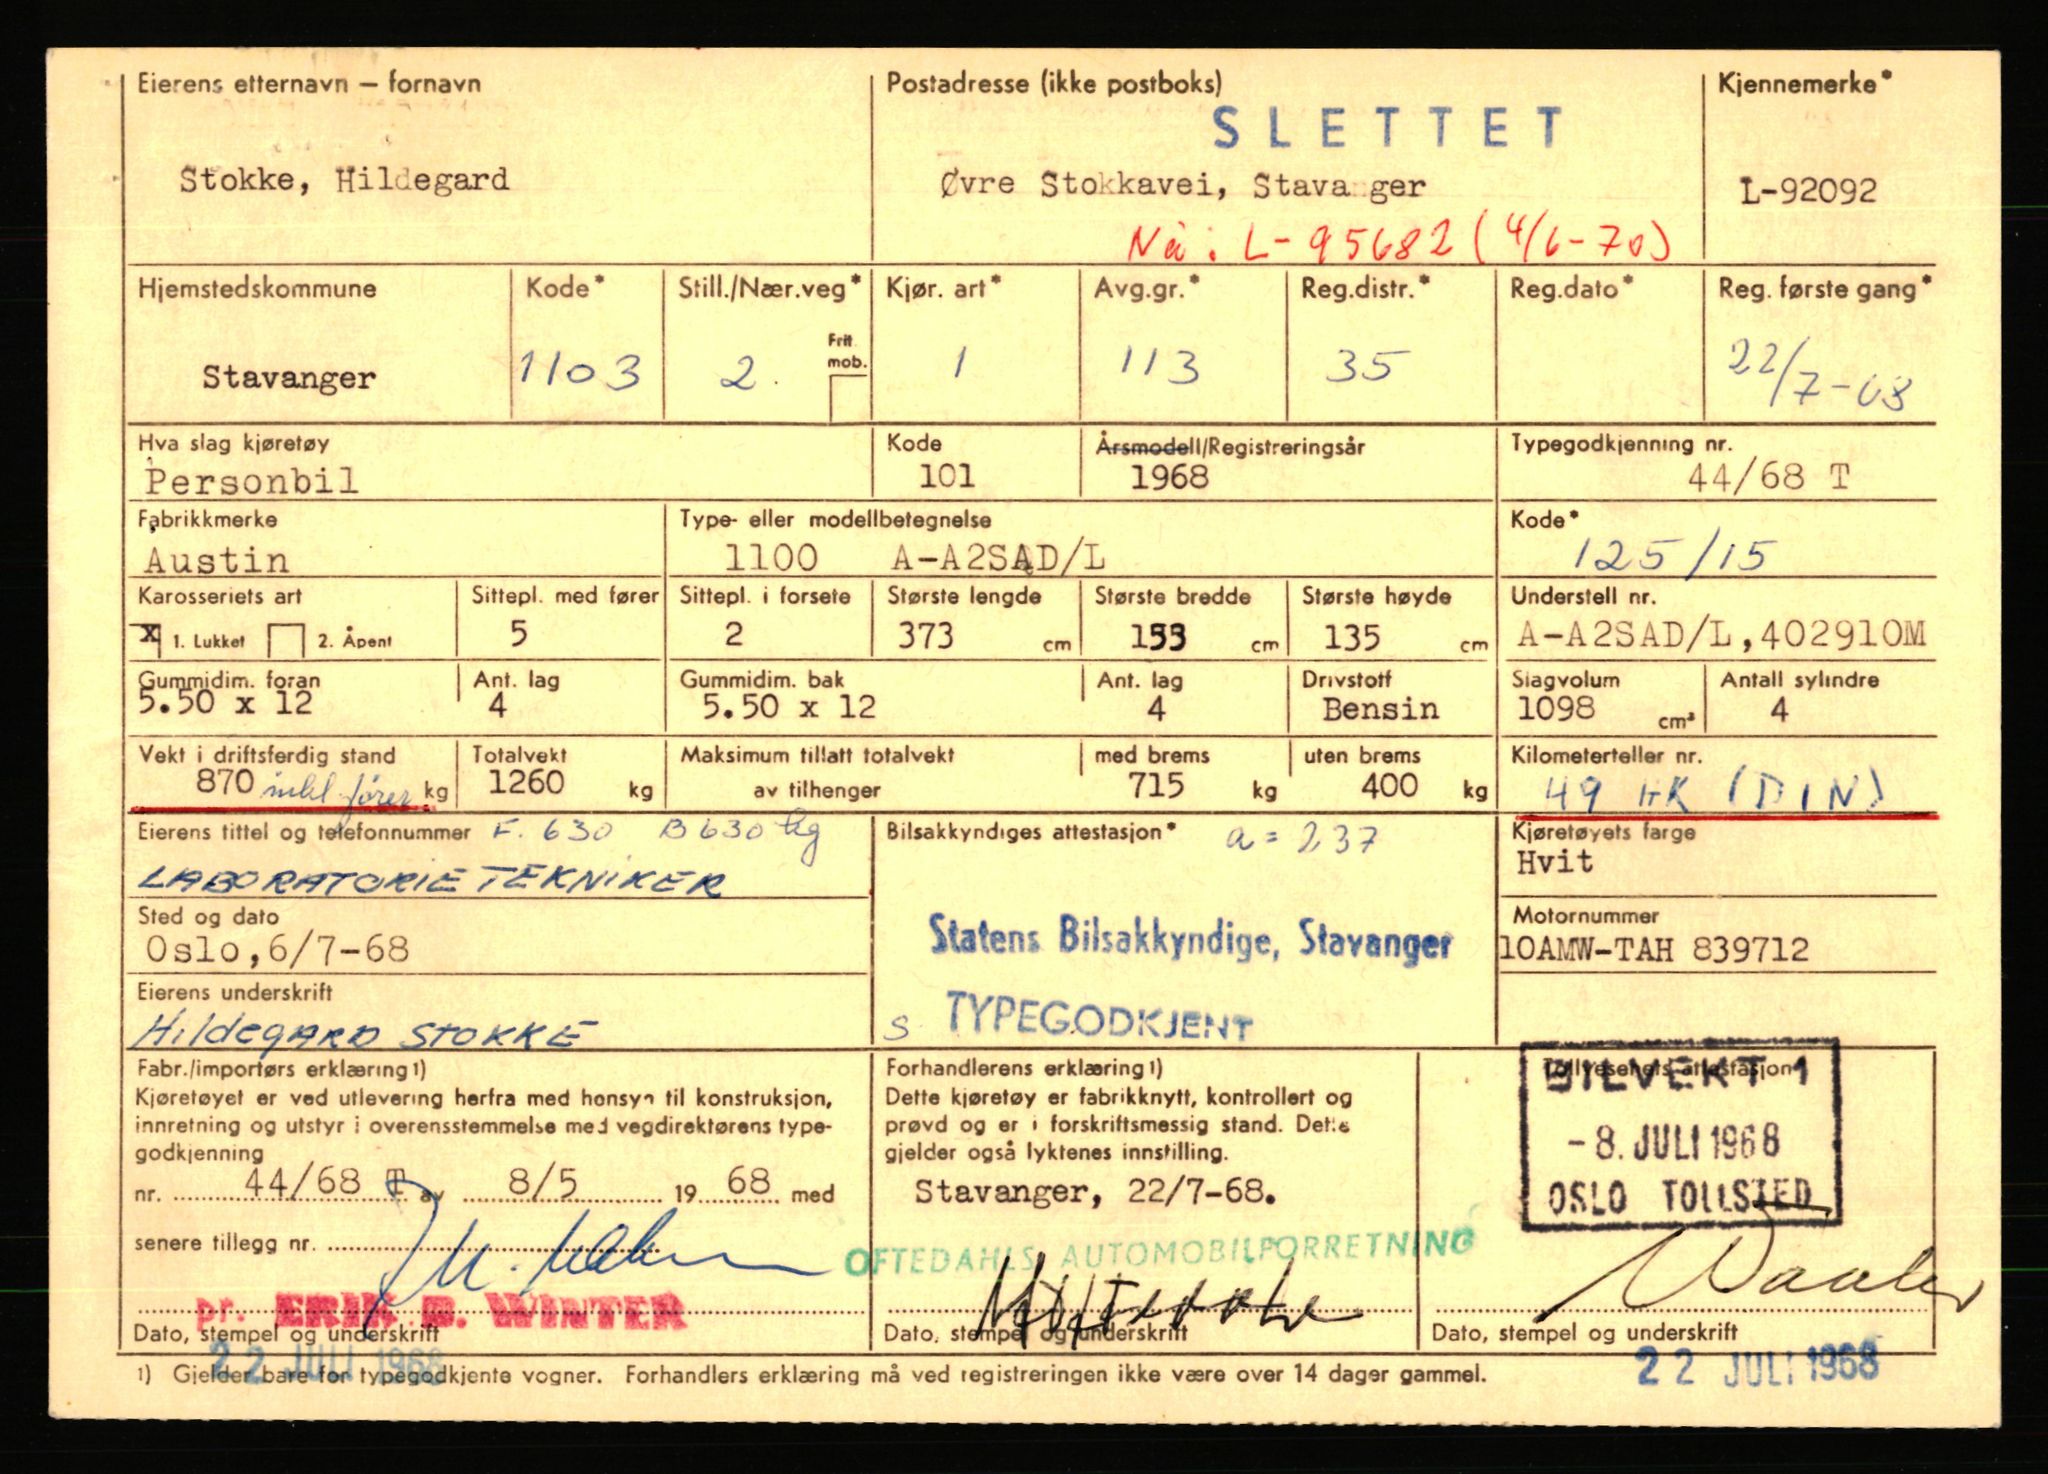 Eierens etternavn – fornavn
Postadresse (ikke postboks)
Kjennemerke*
SLETTET
Stokke, Hildegard
Øvre Stokkavei, Stavanger
L-92092
Nå: L-95682 (4/6-70)
Hjemstedskommune
Kode*
Still./Nær.veg*
Kjør. art*
Avg.gr.*
Reg.distr.*
Reg.dato*
Reg. første gang*
Fritt mob.
Stavanger
1103
2
1
113
35
22/7-68
Hva slag kjøretøy
Kode
Årsmodell/Registreringsår
Typegodkjenning nr.
Personbil
101
1968
44/68 T
Fabrikkmerke
Type- eller modellbetegnelse
Kode*
Austin
1100 A-A2SAD/L
125/15
Karosseriets art
Sittepl. med fører
Sittepl. i forsete
Største lengde
Største bredde
Største høyde
Understell nr.
x 1. Lukket 2. Åpent
5
2
373 cm
153 cm
135 cm
A-A2SAD/L,402910M
Gummidim. foran
Ant. lag
Gummidim. bak
Ant. lag
Drivstoff
Slagvolum
Antall sylindre
5.50 x 12
4
5.50 x 12
4
Bensin
1098 cm³
4
Vekt i driftsferdig stand
Totalvekt
Maksimum tillatt totalvekt
med brems
uten brems
Kilometerteller nr.
870 inkl fører kg
1260 kg
av tilhenger
715 kg
400 kg
49 HK (DIN)
Eierens tittel og telefonnummer F. 630 B 630 kg
Bilsakkyndiges attestasjon* a = 237
Kjøretøyets farge
LABORATORIETEKNIKER
Hvit
Sted og dato
Motornummer
Oslo,6/7-68
Statens Bilsakkyndige, Stavanger
10AMW-TAH 839712
Eierens underskrift
S TYPEGODKJENT
Hildegard Stokke
Fabr./importørs erklæring1)
Kjøretøyet er ved utlevering herfra med hensyn til konstruksjon,
innretning og utstyr i overensstemmelse med vegdirektørens type-
godkjenning
nr. 44/68 T av 8/5 19 68 med
senere tillegg nr.
pr. ERIK B. WINTER
Dato, stempel og underskrift
22 JULI 1968
Forhandlerens erklæring1)
Dette kjøretøy er fabrikknytt, kontrollert og
prøvd og er i forskriftsmessig stand. Dette
gjelder også lyktenes innstilling.
Stavanger, 22/7-68.
OFTEDAHLS AUTOMOBILFORRETNING
Dato, stempel og underskrift
Tollvesenets attestasjon
BILVEKT 1
-8. JULI 1968
OSLO TOLLSTED
Dato, stempel og underskrift
22 JULI 1968
1) Gjelder bare for typegodkjente vogner. Forhandlers erklæring må ved registreringen ikke være over 14 dager gammel.